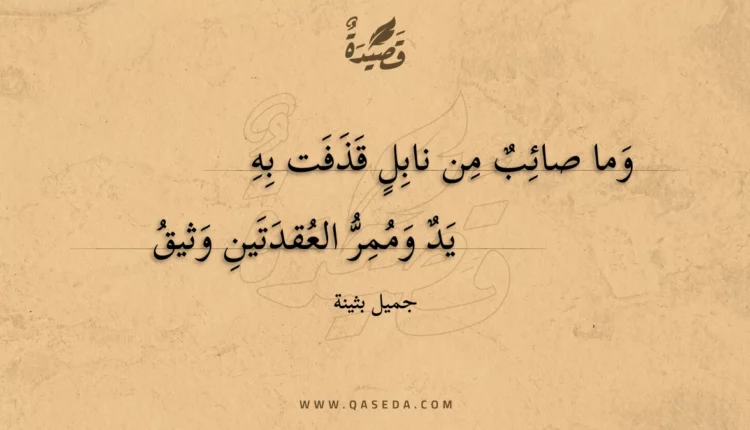 قَصِيدَةٌ
وَما صائِبٌ مِن نابِلٍ قَذَفَت بِهِ
يَدٌ وَمُمِرُّ العُقدَتَينِ وَثيقُ
جميل بثينة
WWW.QASEDA.COM